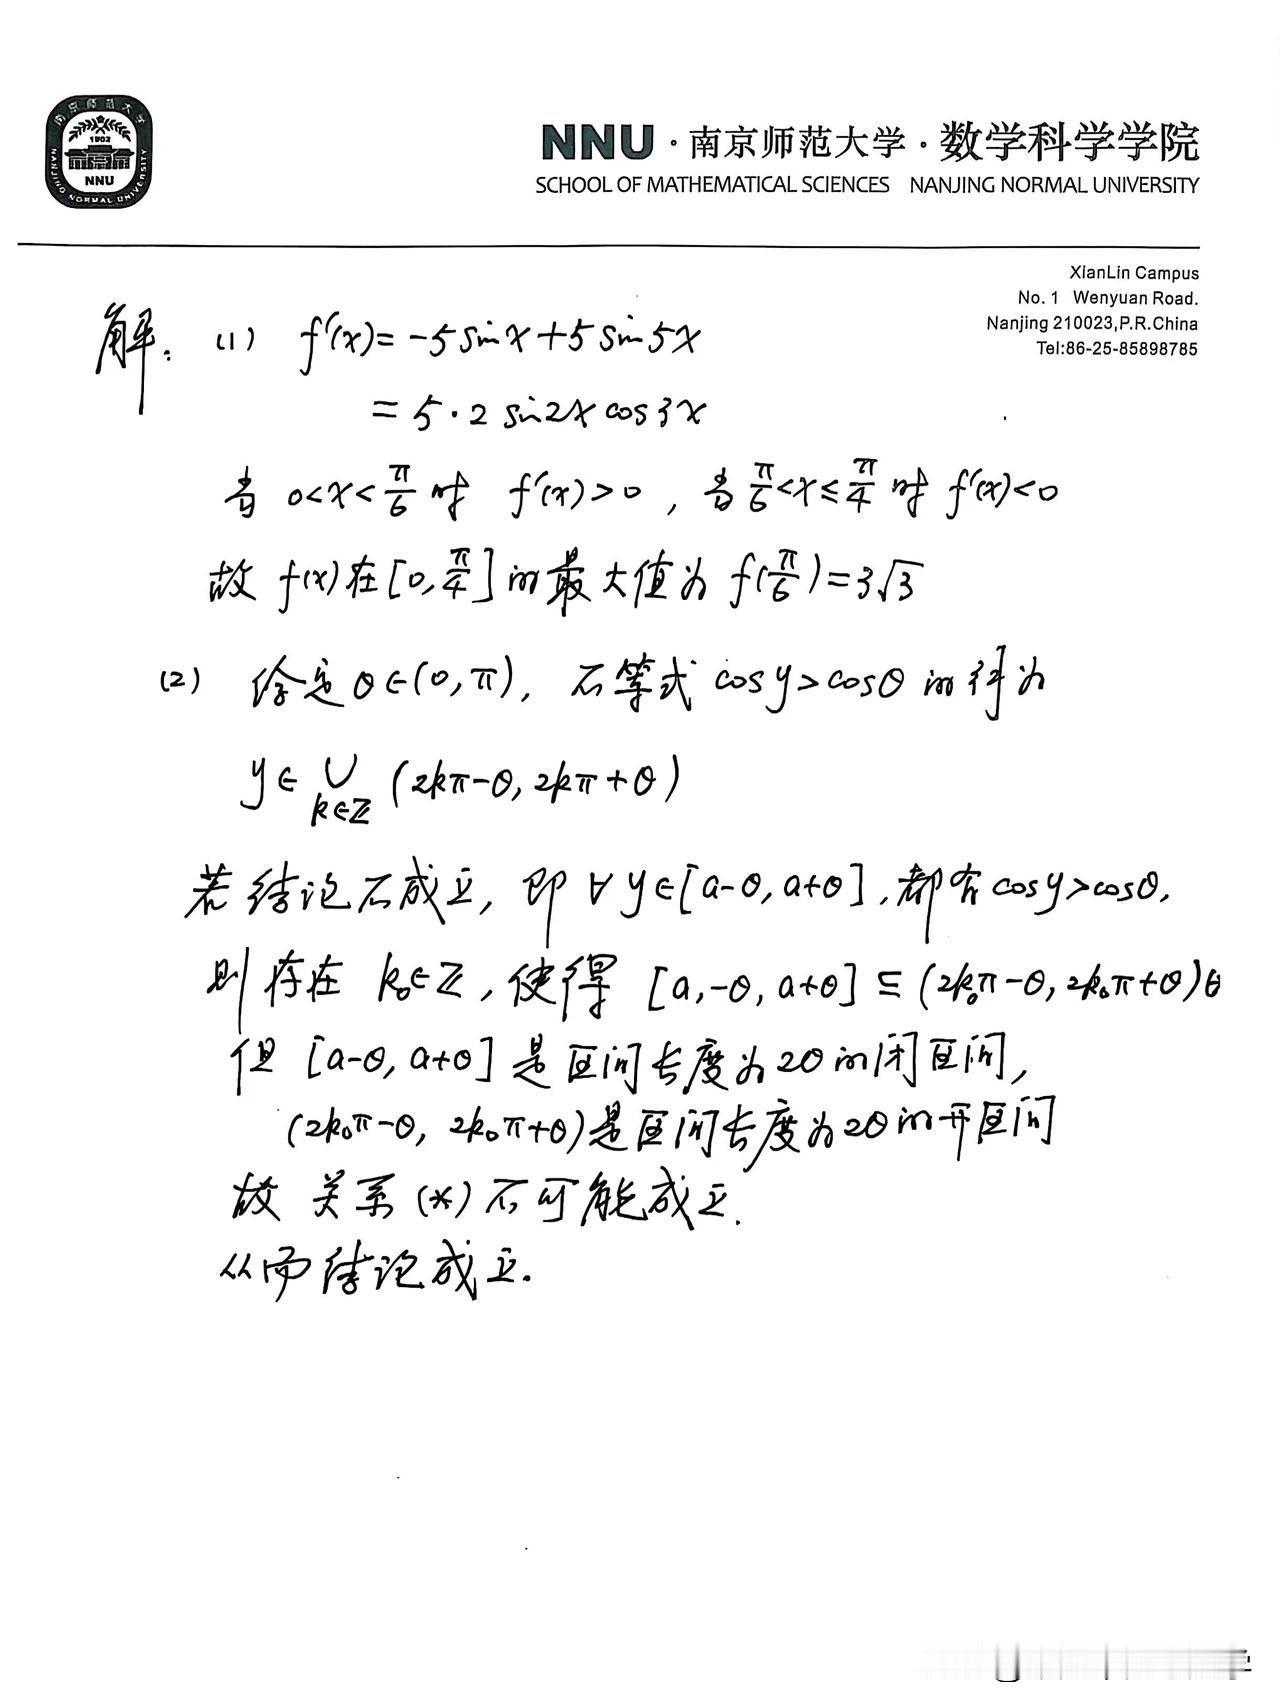 南京师范大学
1902
NNU
NANJING NORMAL UNIVERSITY
NNU·南京师范大学·数学科学学院
SCHOOL OF MATHEMATICAL SCIENCES NANJING NORMAL UNIVERSITY
XianLin Campus
No. 1 Wenyuan Road.
Nanjing 210023,P.R.China
Tel:86-25-85898785
解: (1) f'(x)= -5 sin x + 5 sin 5x
= 5·2 sin2x cos3x
当 0<x<π/6 时 f'(x)>0, 当 π/6<x≤π/4 时 f'(x)<0
故 f(x) 在 [0, π/4] 的最大值为 f(π/6)=3√3
(2) 给定 θ∈(0,π), 不等式 cos y>cosθ 的解为
y∈ ∪ k∈ℤ (2kπ-θ, 2kπ+θ)
若结论不成立, 即 ∀ y∈[a-θ, a+θ], 都有 cosy>cosθ,
则存在 k₀∈ℤ, 使得 [a,-θ, a+θ] ⊆ (2k₀π-θ, 2k₀π+θ)
但 [a-θ, a+θ] 是区间长度为2θ的闭区间,
(2k₀π-θ, 2k₀π+θ)是区间长度为2θ的开区间
故 关系 (*) 不可能成立.
从而结论成立.